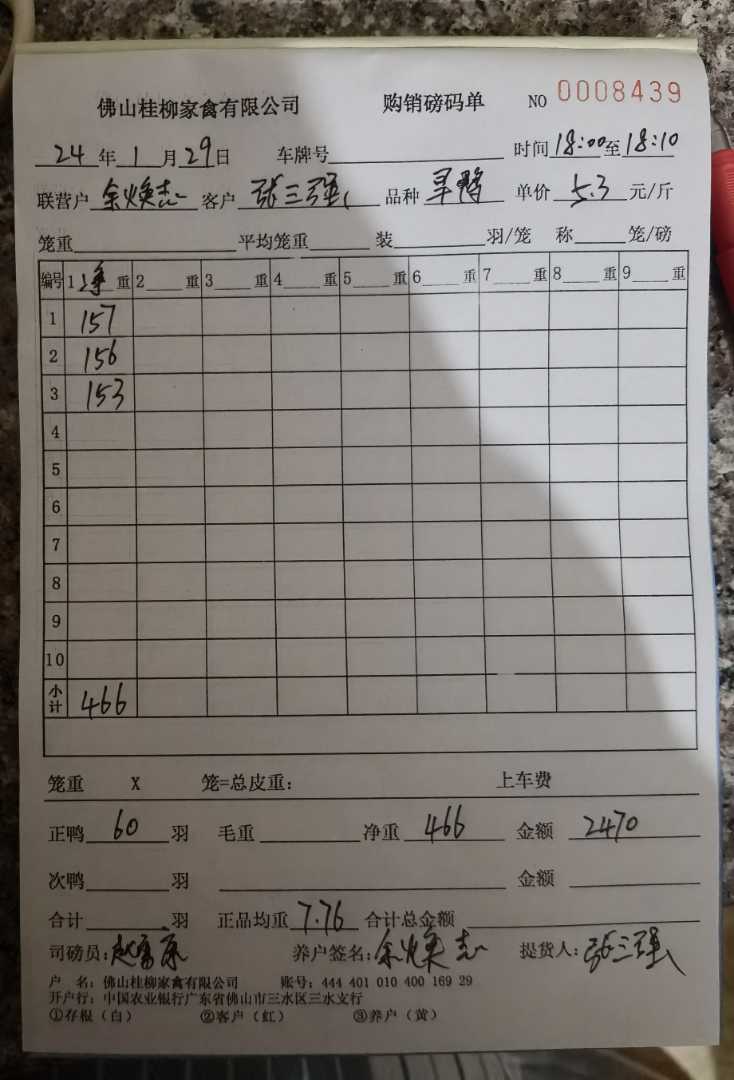 佛山桂柳家禽有限公司 购销磅码单 NO 0008439
24年1月29日 车牌号 时间18:00至18:10
联营户 余焕志 客户 张三强 品种 旱鸭 单价 5.3 元/斤
笼重 平均笼重 装 羽/笼 称 笼/磅
编号 1 净重 2 重 3 重 4 重 5 重 6 重 7 重 8 重 9 重
1 157
2 156
3 153
4
5
6
7
8
9
10
小计 466
笼重 X 笼=总皮重： 上车费
正鸭 60 羽 毛重 净重 466 金额 2470
次鸭 羽 金额
合计 羽 正品均重 7.76 合计总金额
司磅员： 养户签名：余焕志 提货人：张三强
户 名：佛山桂柳家禽有限公司 账号：444 401 010 400 169 29
开户行：中国农业银行广东省佛山市三水区三水支行
①存根（白） ②客户（红） ③养户（黄）